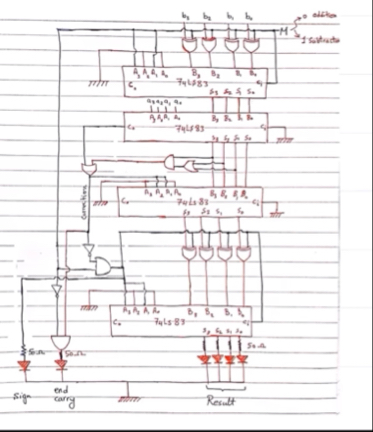 b₃ b₂ b₁ b₀
M 0 addition
1 Subtractor
A₃ A₂ A₁ A₀ B₃ B₂ B₁ B₀
C₀ 74LS83 Cᵢ
S₃ S₂ S₁ S₀
a₃ a₂ a₁ a₀ B₃ B₂ B₁ B₀
74LS83 Cᵢ
S₃ S₂ S₁ S₀
A₃ A₂ A₁ A₀ B₃ B₂ B₁ B₀
C₀ 74LS83 Cᵢ
S₃ S₂ S₁ S₀
A₃ A₂ A₁ A₀ B₃ B₂ B₁ B₀
C₀ 74LS83 Cᵢ
S₃ S₂ S₁ S₀
50Ω 50Ω 50Ω
sign end carry Result